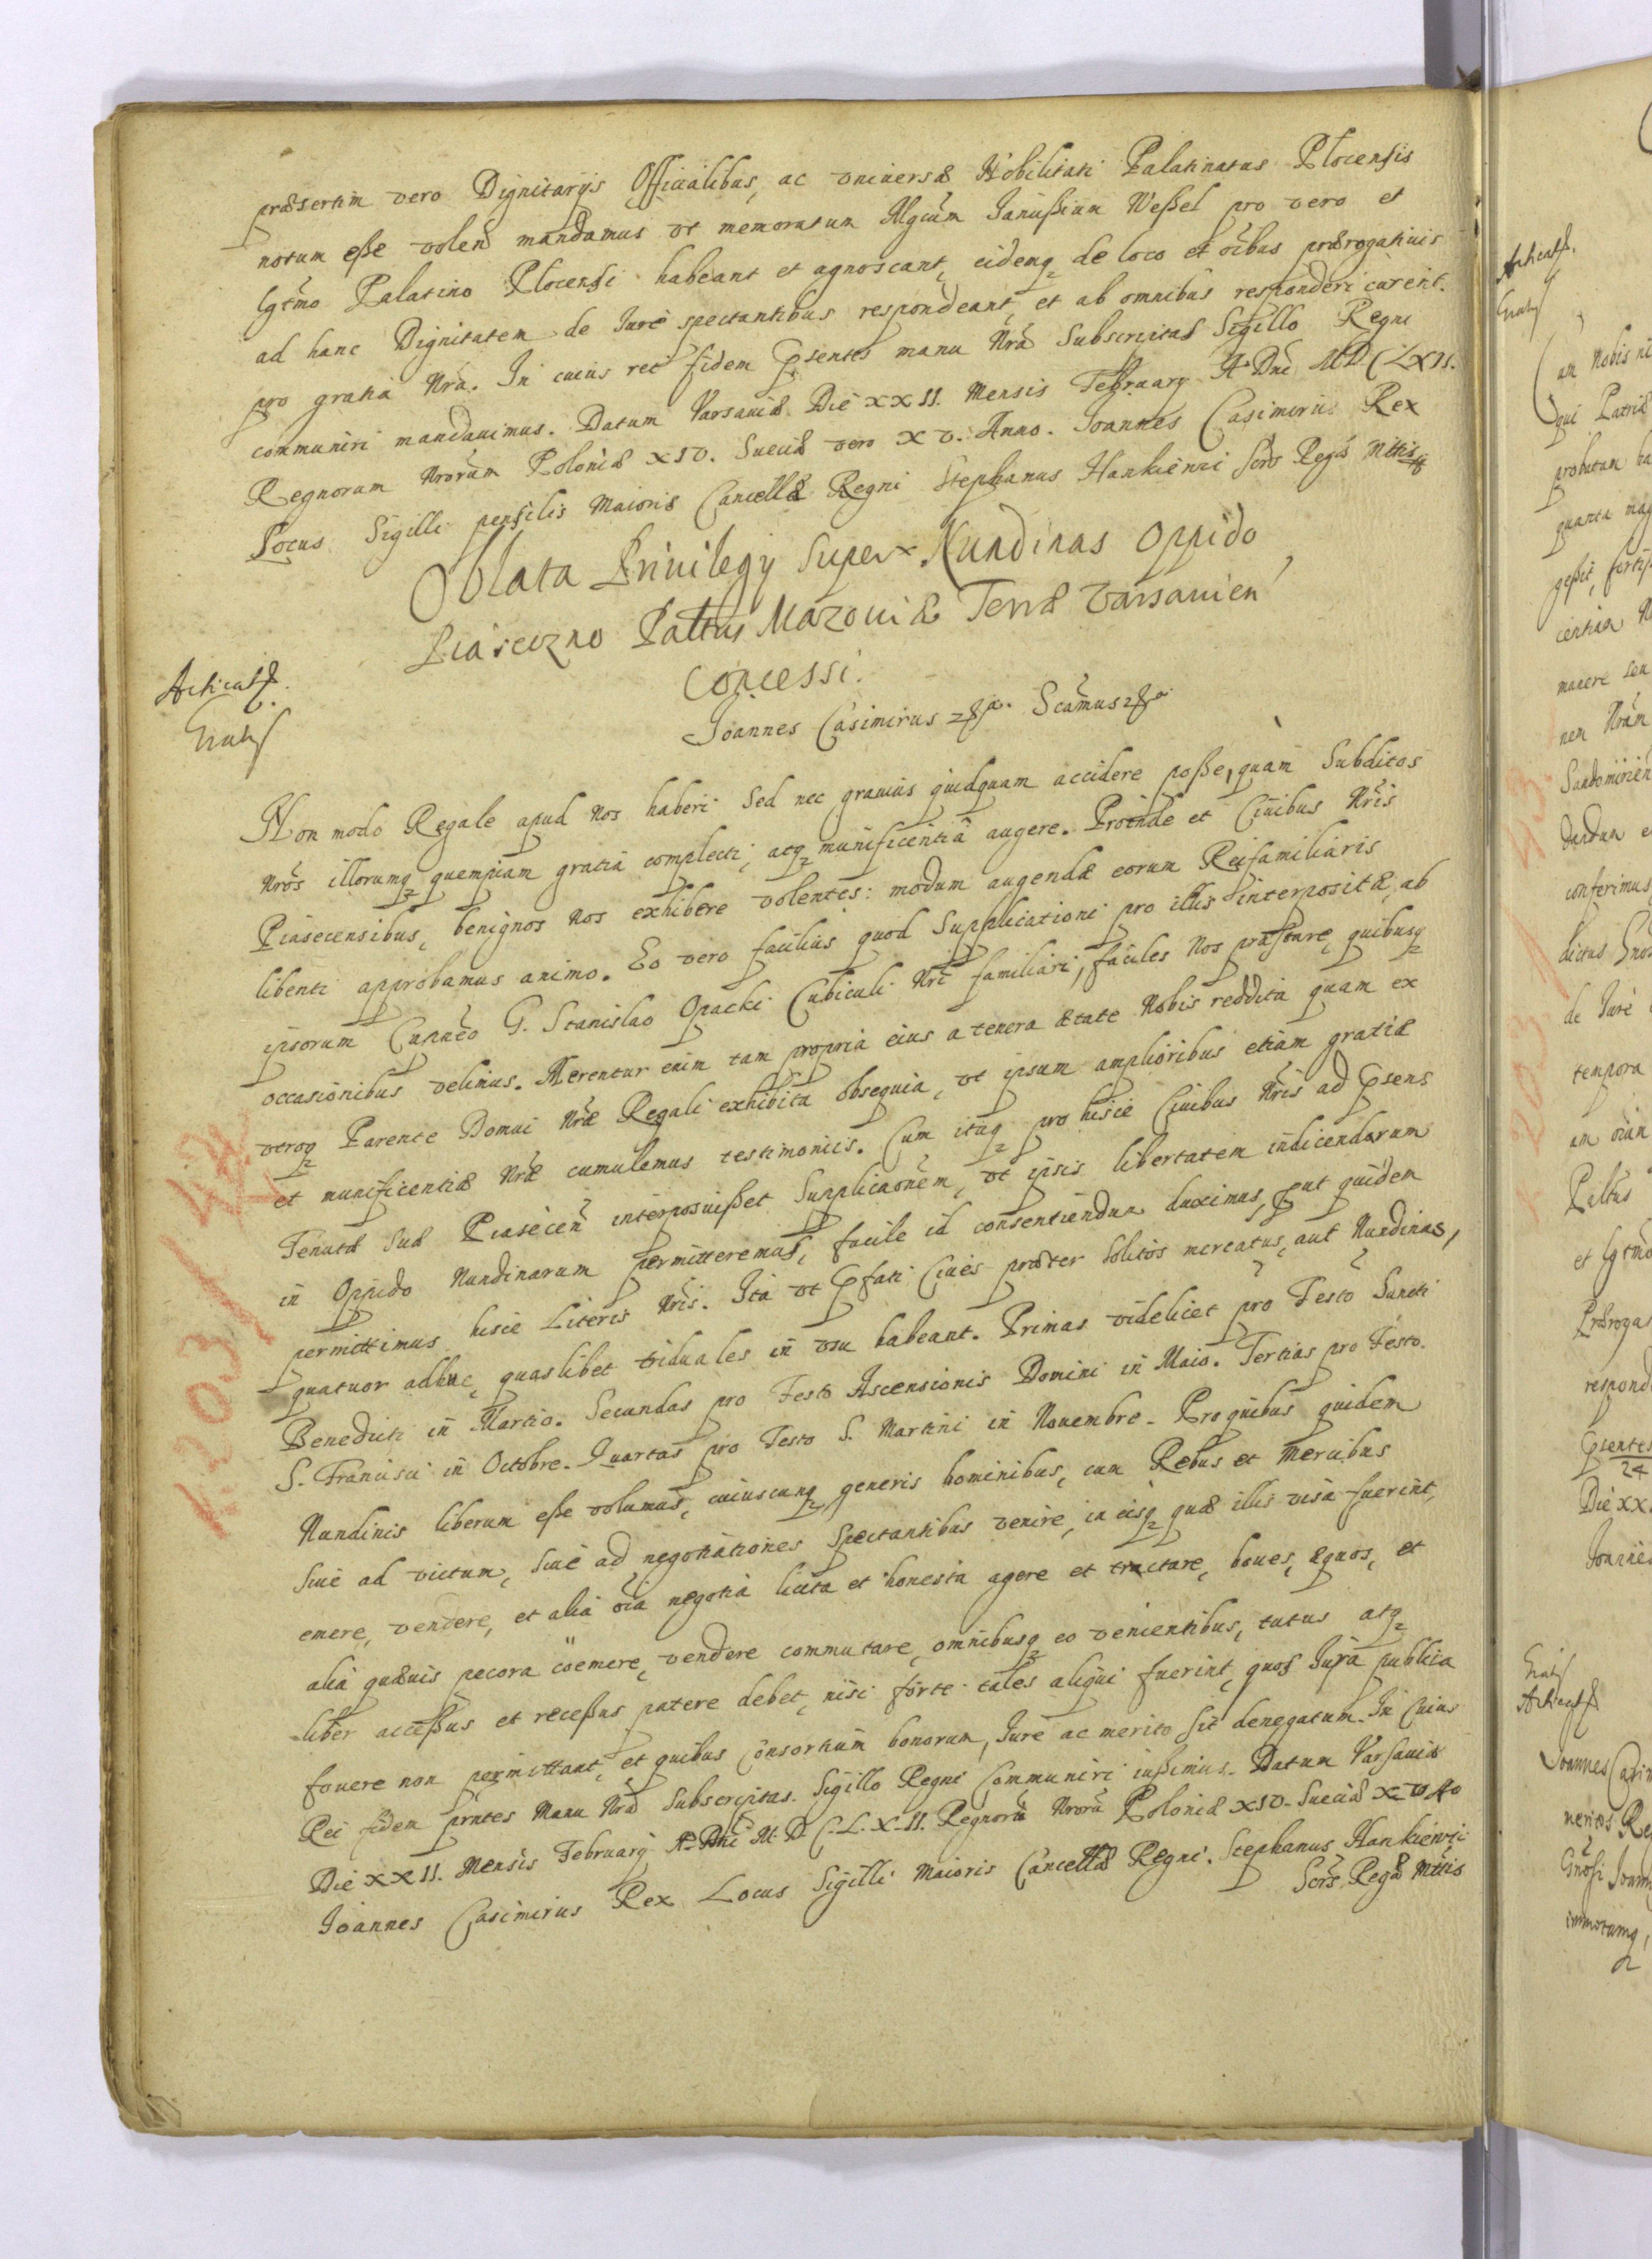 præsertim vero Dignitarijs Officialibus, ac vniversæ Nobilitati Palatinatus Plocensis
notum esse volen̄ mandamus vt memoratum Mgcum Janussium Wessel pro vero et
lgtmo Palatino Plocensi habeant et agnoscant, eidemq de loco et oībus prærogatiuis
ad hanc Dignitatem de Jure spectantibus respondeant, et ab omnibus responderi curent.
pro gratia Nrā. In cuius rei fidem psentes manu Nrā Subscriptas Sigillo Regni
communiri mandauimus. Datum Varsauiæ Die XXII. Mensis Februarij A. Dni MDCLXII.
Regnorum Nrorum Poloniæ XIV. Sueciæ vero XV. Anno. Joannes Casimirus Rex
Locus Sigilli pensilis Maioris Cancellæ Regni Stephanus Hankiewi Scrs Regæ Mttis
Oblata Priuilegij super Nundinas Oppido
Piaseczno Paltus Mazouiæ Terræ Varsauien
Concessi.
Acticat
Joannes Casimirus Scāmus
Non modo Regale apud Nos haberi Sed nec grauius quidquam accidere posse, quam Subditos
Nros illorumq quempiam gratia complecti, atq munificentiâ augere. Proinde et Ciuibus Nris
Piasecensibus, benignos Nos exhibere volentes: modum augendæ eorum Reifamiliaris
libenti approbamus animo. Eo vero facilius quod Supplicationi pro illis interpositæ, ab
ipsorum Capneo G. Stanislao Opacki Cubiculi Nri familiari, faciles Nos præstare, quibusq
occasionibus velimus. Merentur enim tam propria eius a tenera ætate Nobis reddita quam ex
vtroq Parente Domui Nræ Regali exhibita obsequia, vt ipsum amplioribus etiam gratiæ
et munificentiæ Nræ cumulemus testimoniis. Cum itaq pro hisce Ciuibus Nris ad psens
Tenutæ Suæ Piasecen interposuisset Supplicaonem, vt ipsis libertatem indicendarum
in Oppido Nundinarum permitteremus, facile id consentiendum duximus, put quidem
permittimus hisce Literis Nris. Ita vt pfati Ciues præter solitos mercatus, aut Nundinas,
quatuor adhuc, quaslibet triduales in vsu habeant. Primas videlicet pro Festo Sancti
Benedicti in Martio. Secundas pro Festo Ascensionis Domini in Maio. Tertias pro Festo
S. Francisci in Octobre. Quartas pro Festo S. Martini in Nouembre. Pro quibus quidem
Nundinis liberum esse volumus, cuiuscunq generis hominibus, cum Rebus et Mercibus
Siue ad victum, Siue ad negotiationes Spectantibus venire, in eisq quæ illis visa fuerint,
emere, vendere, et alia oīa negotia licita et honesta agere et tractare, boues, equos, et
alia quæuis pecora coemere, vendere commutare, omnibusq eo venientibus, tutus atq
liber accessus et recessus patere debet, nisi forte tales aliqui fuerint, quos Jura publica
fouere non permittant, et quibus Consortium bonorum, Jure ac merito sit denegatum. In Cuius
Rei fidem prntes Manu Nrā Subscriptas. Sigillo Regni Communiri iussimus. Datum Varsauiæ
Die XXII. Mensis Februarij A. Dni M.D.C.L.X.II. Regnorū Nrorū Poloniæ XIV. Sueciæ XV Ao
Joannes Casimirus Rex Locus Sigilli Maioris Cancellæ Regni. Stephanus Hankiewi
Scrs Regæ Mttis
1203/42
Acticat
am Nobis
qui Patriæ
probatam
centiam
manere seu
nem Nram
Sandomirien
dandum
conferimus
de Jure
tempora
Paltus
et lgtmo
Præroga
respond
psentes
24
Die XX
Joannes
Acticat
Joannes Casim
meritos